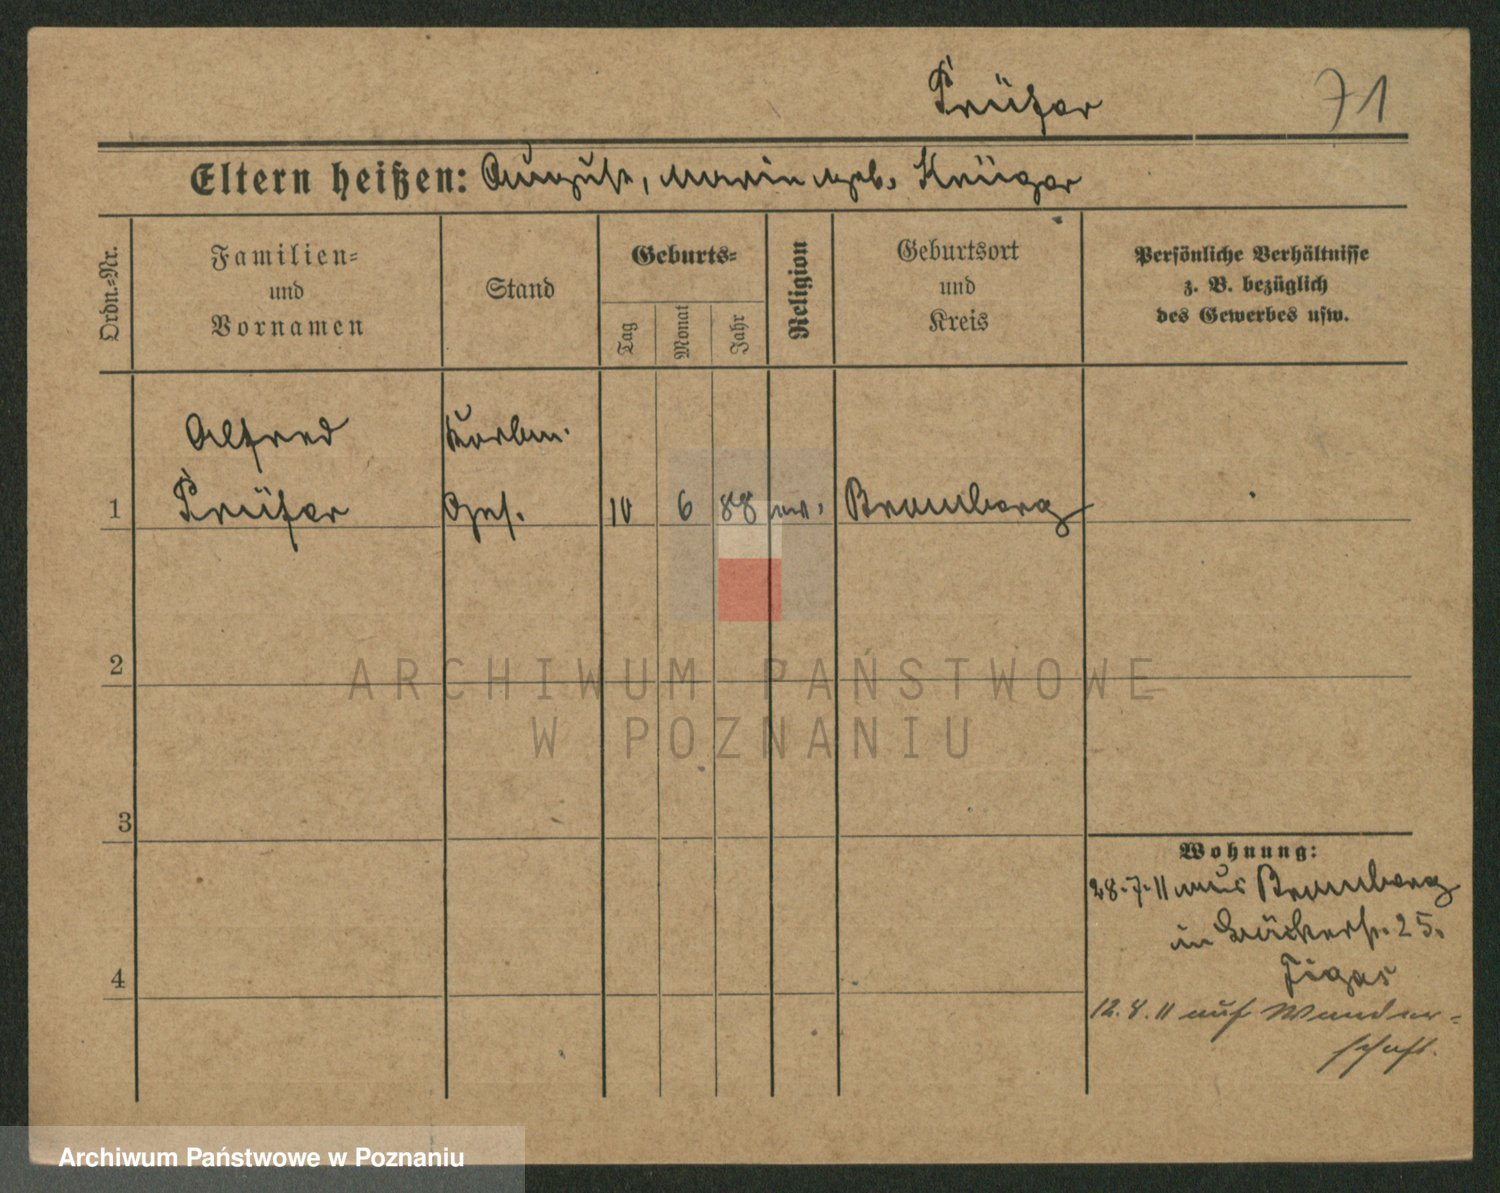 Prüfer 71
Eltern heißen: August, Marie geb. Krüger
Ordn.-Nr.
Familien-
und
Vornamen
Stand
Geburts-
Tag
Monat
Jahr
Religion
Geburtsort
und
Kreis
Persönliche Verhältnisse
z. B. bezüglich
des Gewerbes usw.
Alfred Korbm.
1 Prüfer Ges. 10 6 88 ev. Bromberg
2
3
4
Wohnung:
28.7.11 aus Bromberg
in Bäckerstr. 25.
12.8.11 auf Wander-
schaft.
ARCHIWUM PAŃSTWOWE
W POZNANIU
Archiwum Państwowe w Poznaniu